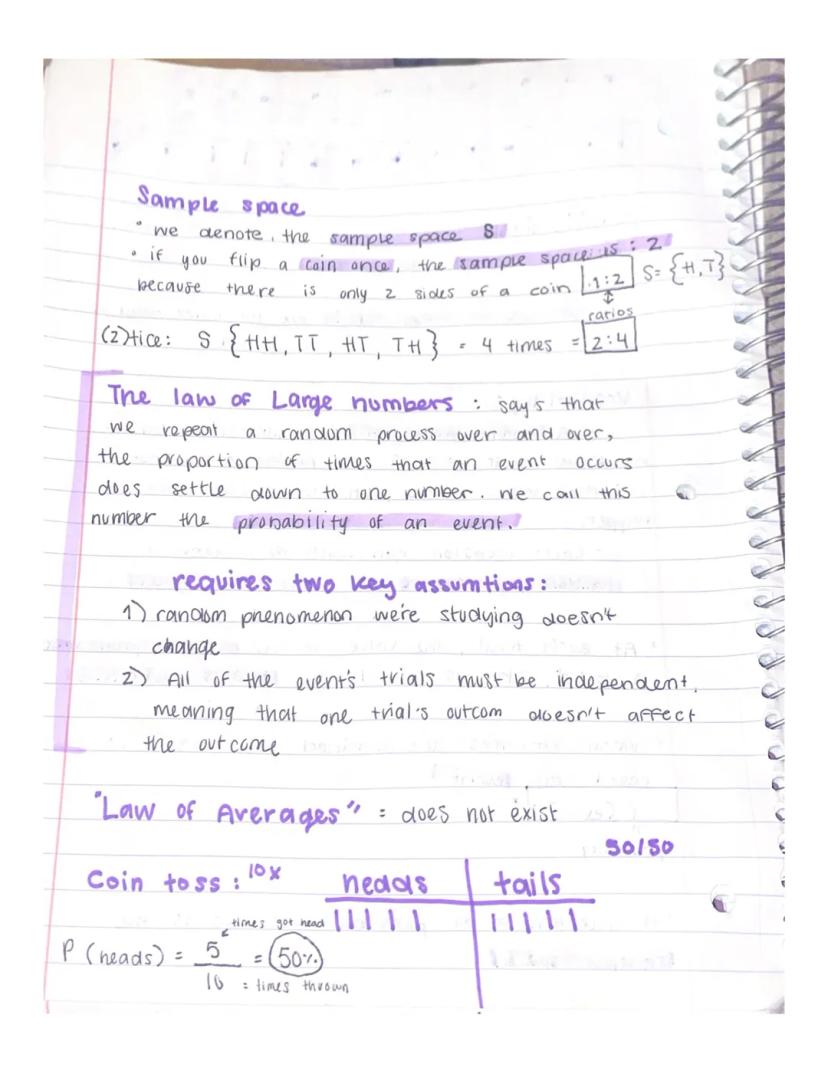 Sample space
• we denote the sample space S
• if you flip a coin once, the sample space is : 2
because there is only 2 sides of a coin 1:2 S= {H,T}
ratios
(2)tice: S {HH, TT, HT, TH} = 4 times = 2:4
The law of Large numbers : say's that
we repeat a random process over and over,
the proportion of times that an event occurs
does settle down to one number. We call this
number the probability of an event.
requires two key assumtions:
1) random phenomenon we're studying doesn't
change
2) All of the event's trials must be independent,
meaning that one trial's outcom doesn't affect
the outcome
"Law of Averages" = does not exist
50/50
Coin toss: 10x heads tails
times got head | | | | | | | | | |
P (heads) = 5 = 50%
10 = times thrown